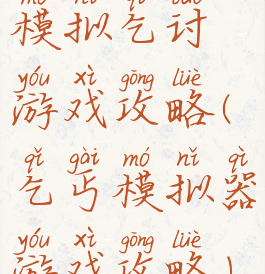 模拟乞讨
yóu xì gōng lüè
游戏攻略(
qǐ gài mó nǐ qì
乞丐模拟器
yóu xì gōng lüè
游戏攻略)